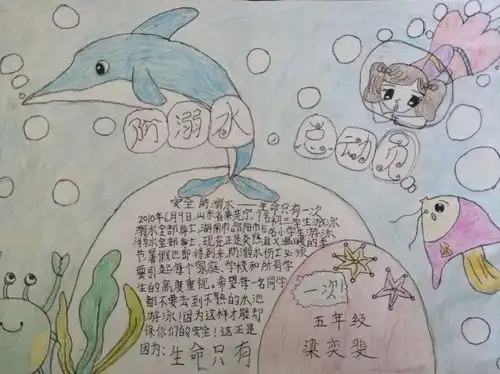 防溺水
总动员
安全防溺水——生命只有一次
2010年6月9日,山东省莱芜尔7名初三学生游泳
溺水全部身亡,湖南市邵阳市5名小学生游泳
溺水全部身亡,现在正是炎热且又温暖的季
节暑假已即将到来,防溺水伤工必须
要引起每个家庭、学校和所有学
生的高度重视。希望每一名同学
都不要去到不熟的水池
游泳!因为这样才能却
保你们的安全!这正是
因为:生命只有
一次!
五年级
梁奕斐